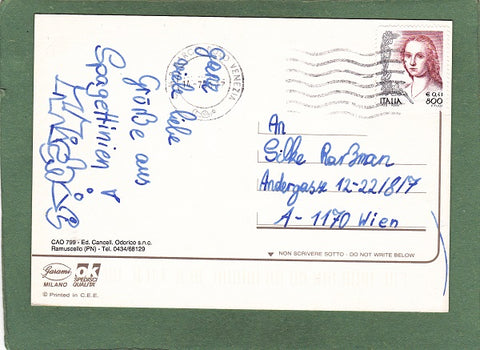 Ganz
viele liebe
Grüße aus
Spagettinien
VENEZIA
ITALIA
€ 0,41
800
An
Silke Raßman
Andergasse 12-22/8/7
A - 1170 Wien
CAO 799 - Ed. Cancell. Odorico s.n.c.
Ramuscello (PN) - Tel. 0434/68129
▼ NON SCRIVERE SOTTO - DO NOT WRITE BELOW
Garami
MILANO
OK
SPEDISCI
QUALITA'
© Printed in C.E.E.